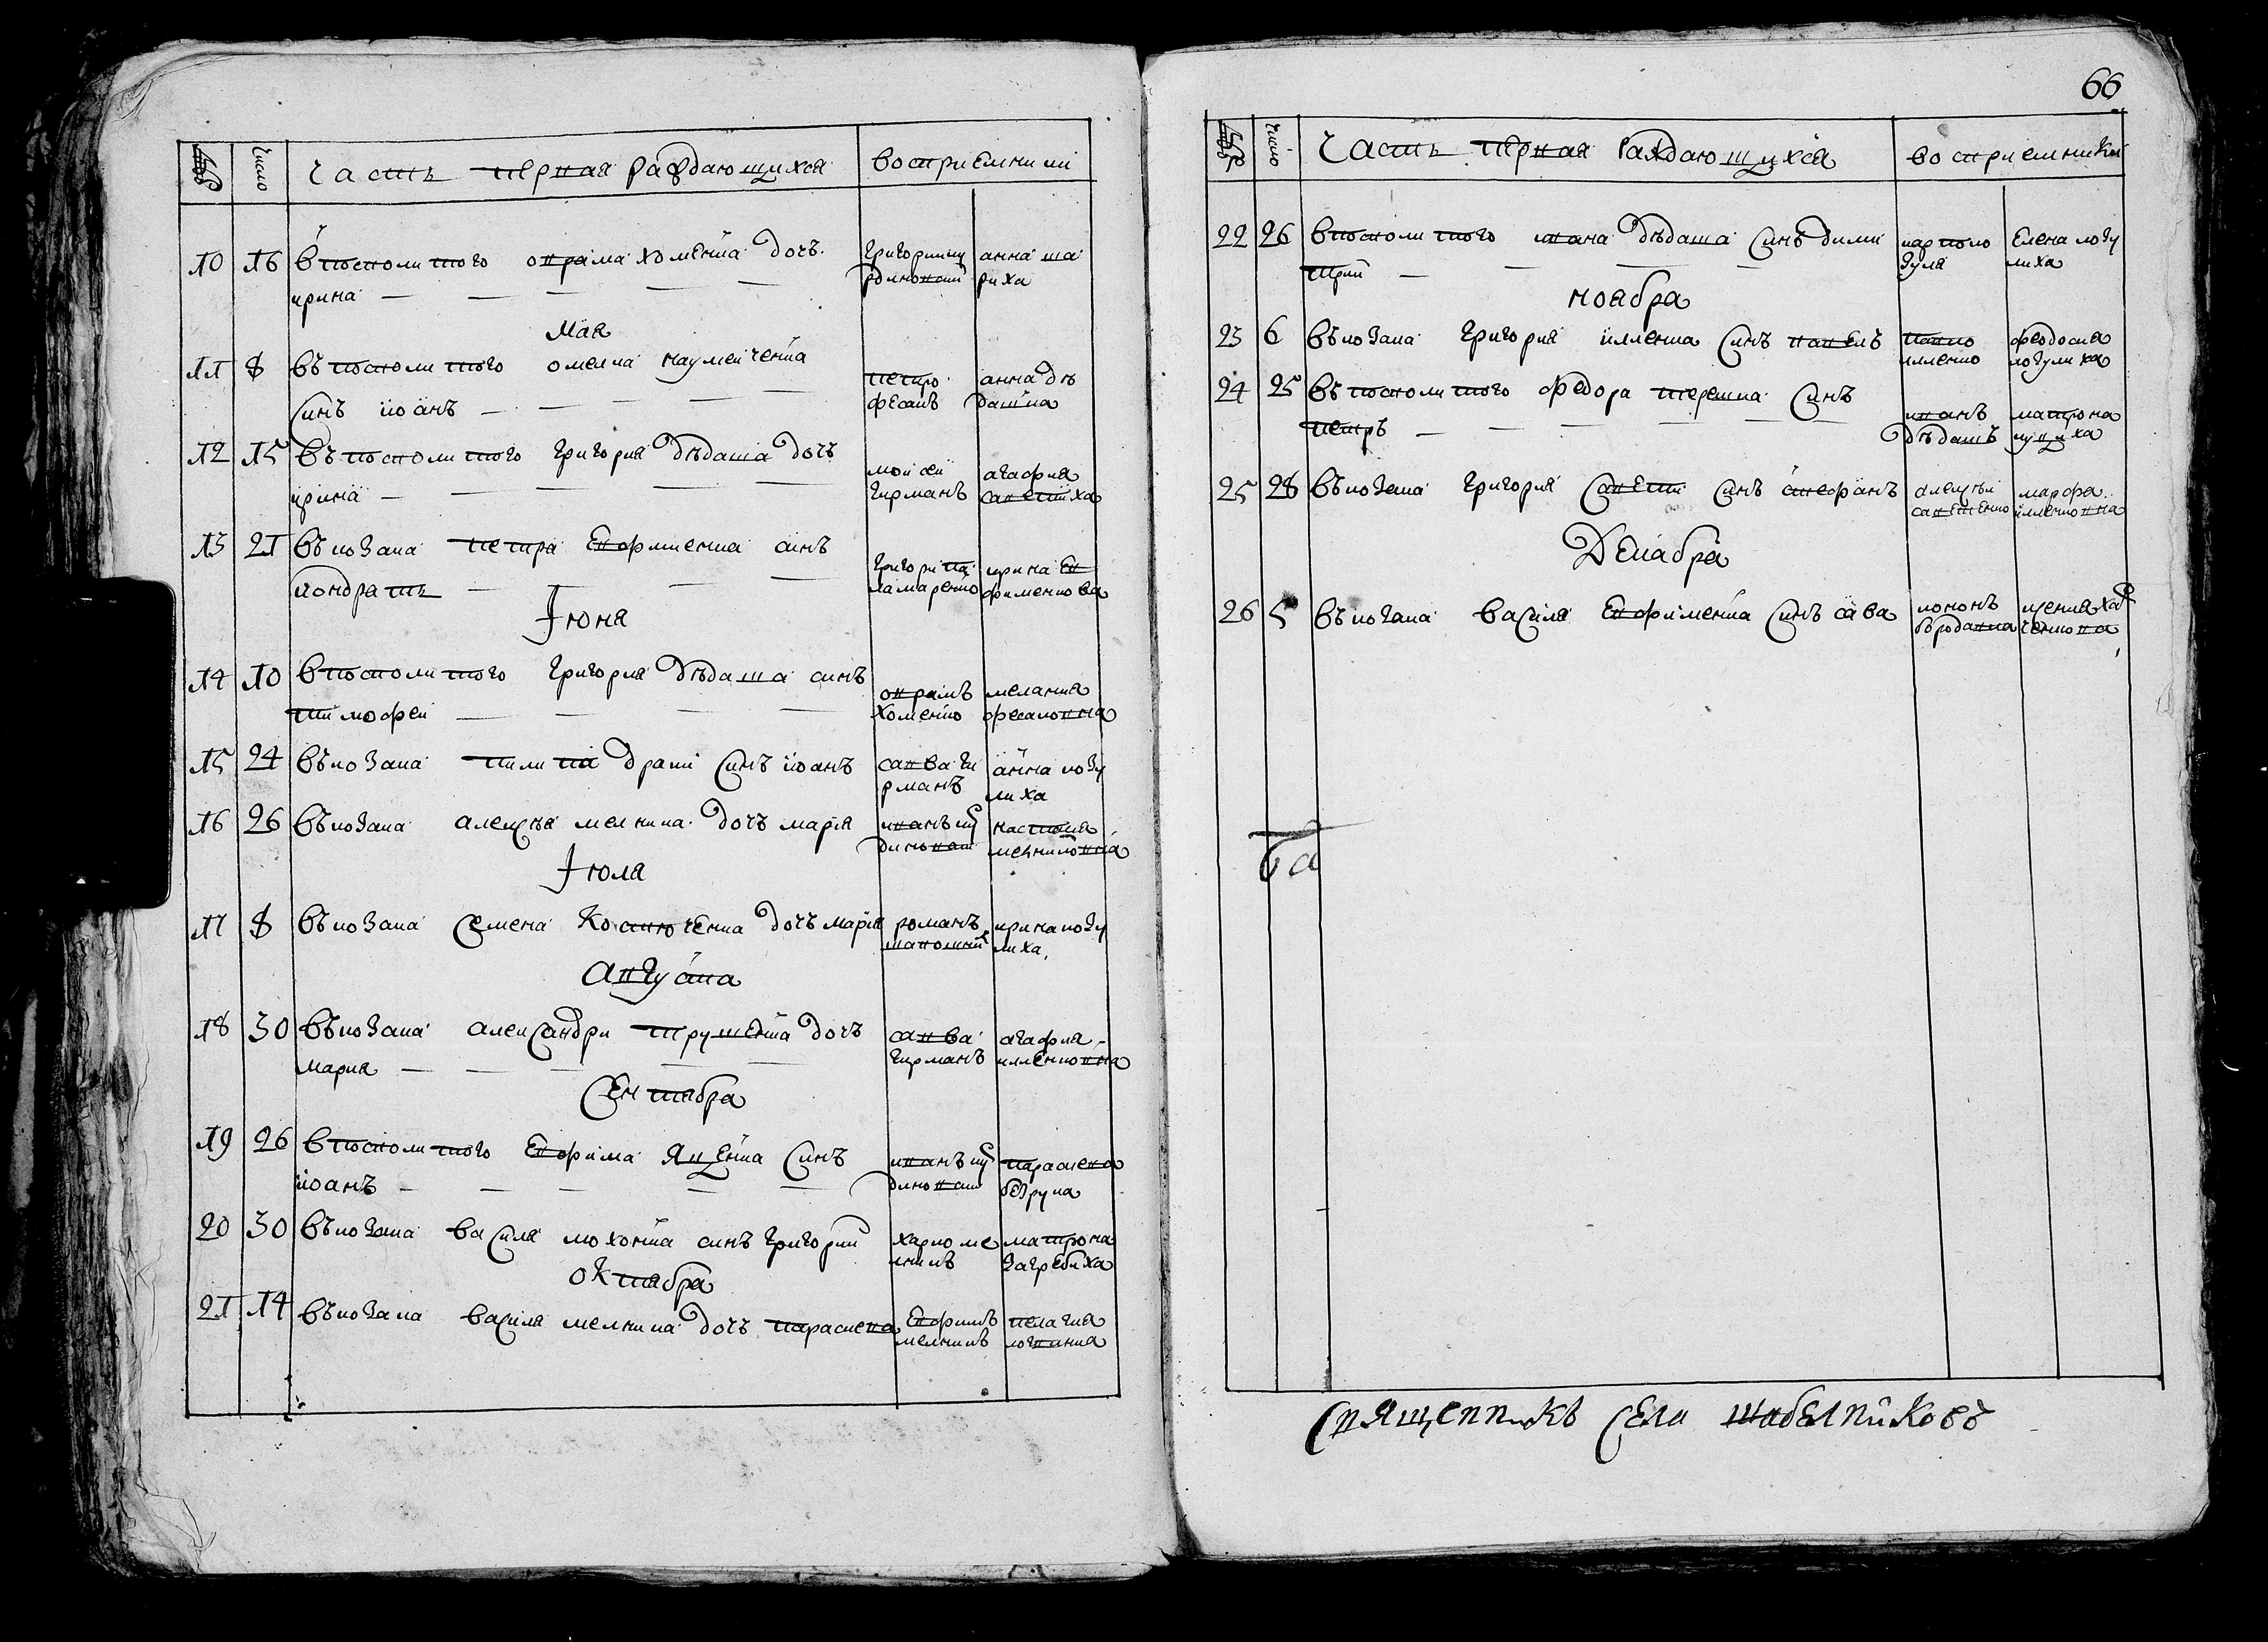 число
часть первая раждающихся
восприемники
10 16 В посполитого аврама хоменка дочъ
ирина
григории щ
диновски
анна ша
риха
Мая
11 8 въ посполитого омелка наумейченка
синъ иоанъ
петро
фесакъ
анна дѣ
дашка
12 15 въ посполитого григория дѣдаша дочъ
ирина
моисей
гирманъ
агафия
савеглиха
13 21 въ козака петра евфименка синъ
кондратъ
григори па
ламаренко
ирина ев
фименкова
Июня
14 10 в посполитого григория дѣдаша синъ
тимофеи
аврамъ
хоменко
мелания
фесаковна
15 24 въ козака пилипа драги синъ иоанъ
савва ги
рманъ
анна кову
лиха
16 26 въ козака алексѣя мелника дочъ мария
иванъ щ
диновски
настасия
мелниковна
Июля
17 8 въ козака семена костюченка дочъ мария
романъ
шаполскии
ирина козу
лиха
Августа
18 30 въ козака александри трушенка дочъ
мария
савва
гирманъ
агафия
илленковна
Сентября
19 26 в посполитого евфима яценка синъ
иоанъ
иванъ щ
диновски
параскева
безрука
20 30 въ козака василя мохонка синъ григории
харко ме
лникъ
матрона
загребиха
Октября
21 14 въ козака василя мелника дочъ параскева
евфимъ
мелникъ
пелагия
логвиниа
66
число
часть первая раждающихся
восприемники
22 26 в посполитого ивана дѣдаша синъ дими
трии
карпо ко
зуля
елена козу
лиха
ноября
23 6 въ козака григория илленка синъ павелъ
павло
илленко
феодосия
козулиха
24 25 въ посполитого федора терешка синъ
петръ
иванъ
дѣдашъ
матрона
луциха
25 28 въ козака григория савегки синъ стефанъ
алексѣй
савегченко
марфа
илленковна
Декабря
26 5 въ козака василя евфименка синъ сава
кононъ
бородавка
ксения ха
ченкова
Священникъ села шабелниковъ